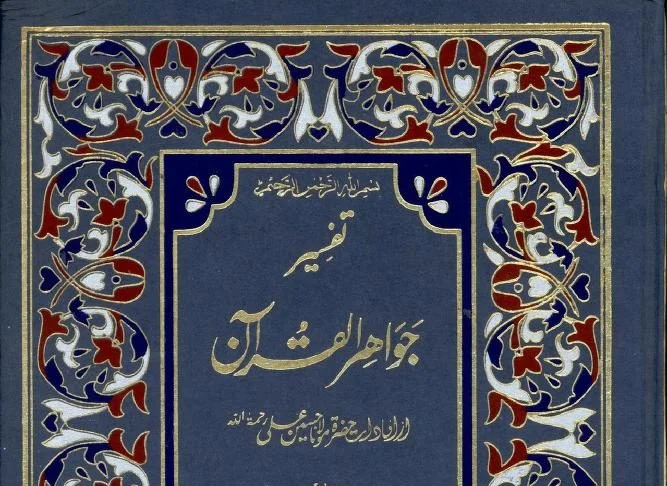 بسم الله الرحمن الرحيم
تفسیر
جواهر القرآن
از افادات حضرة مولانا حسین علی رحمة الله